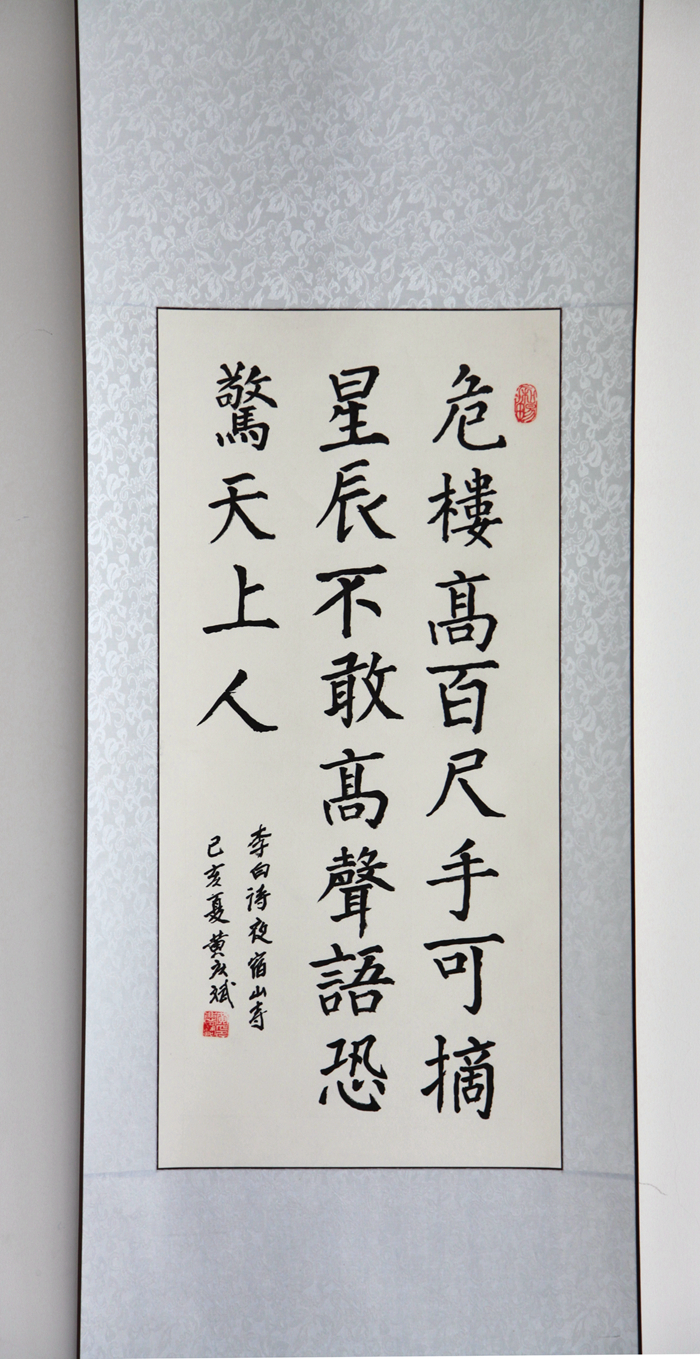 危樓高百尺手可摘
星辰不敢高聲語恐
驚天上人
李白詩夜宿山寺
己亥夏黃斌